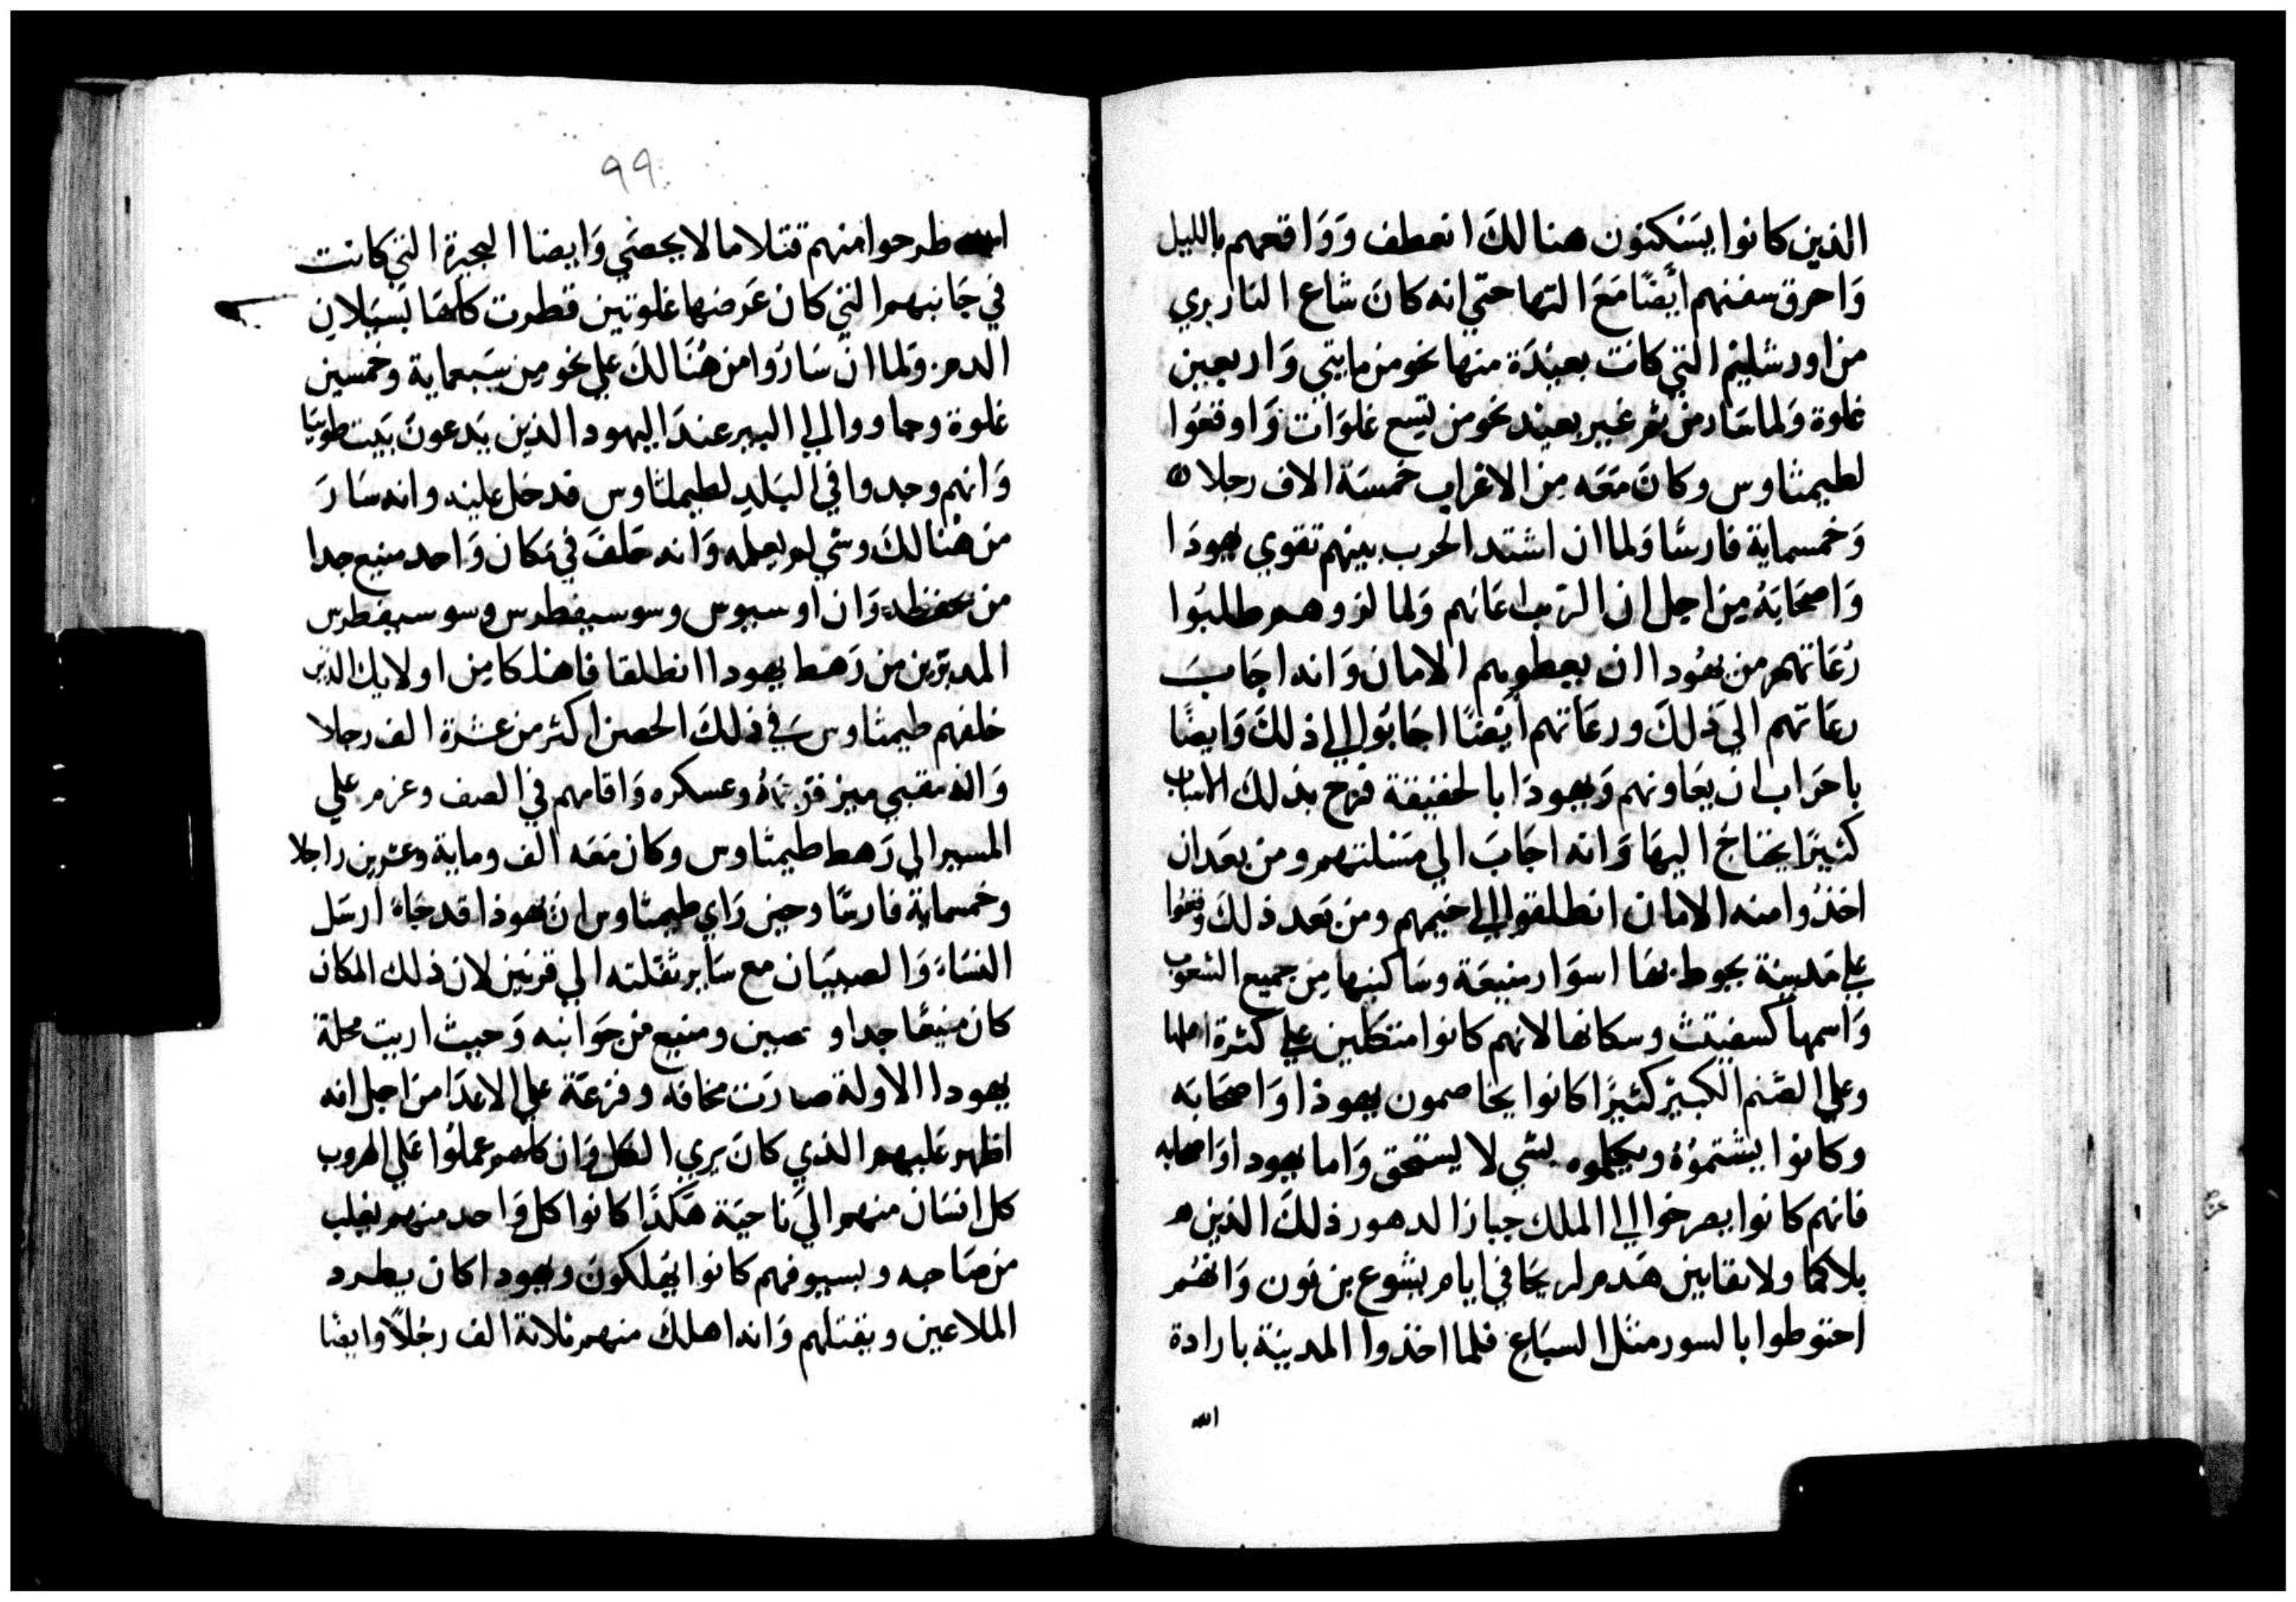 الذين كانوا يسكنون هنالك انعطف وواقعهم بالليل
واحرق سفنهم ايضا مع التها حتي انه كان شاع النار يري
من اورشليم التي كانت بعيدة منها نحو من مايتي واربعين
غلوة ولما سار من ثم غير بعيد نحو من تسع غلوات واوقعوا
لطيمثاوس وكان معه من الاعراب خمسة الاف رجلا
وخمسماية فارسا ولما ان اشتد الحرب بينهم تقوي يهودا
واصحابه من اجل ان الرب اعانهم ولما لزوهم طلبوا
رعاتهم من يهودا ان يعطوهم الامان وانه اجاب
رعاتهم الي ذلك ورعاتهم ايضا اجابوا الي ذلك وايضا
باحراب ان يعاونهم ويهودا بالحقيقة فرح بذلك
كثيرا يحتاج اليها وانه اجاب الي مسلتهم ومن بعد ان
اخذوا منه الامان انطلقوا الي خيمهم ومن بعد ذلك وقعوا
علي مدينة يحوط بها اسوار منيعة وساكنيها من جميع الشعوب
واسمها كسفيتث وسكانها لانهم كانوا متكلين علي كثرة اهلها
وعلي الصنم الكبير كثيرا كانوا يخاصمون يهوذا واصحابه
وكانوا يشتموه ويكلموه بشي لا يستحق واما يهودا واصحابه
فانهم كانوا يصرخوا الي الملك جبار الدهور ذلك الذين
بلا كما ولا نقابين هدم لريحا في ايام يشوع بن نون وانهم
احتوطوا بالسور مثل السباع فلما اخذوا المدينة بارادة
الله
٩٩
الله طرحوا منهم قتلاما لا يحصي وايضا البحيرة التي كانت
في جانبهم التي كان عرضها غلوتين قطرت كلها بسيلان
الدم ولما ان ساروا من هنالك علي نحو من سبعماية وخمسين
غلوة وجاووا الي البير عند اليهود الذين يدعون بيت طوبيا
وانهم وجدوا في البلد لطيماثاوس قد دخل عليه وانه سار
من هنالك وشي لم يعمله وانه خلف في مكان واحد منيع جدا
من يحفظه وان اوسبوس وسوسيفطرس وسوسيفطرس
المدبرين من رهط يهودا انطلقا فاهلكا من اولايك الذين
خلفهم طيمثاوس في ذلك الحصن اكثر من عشرة الف رجلا
وان مقبي ميز قزباه وعسكره واقامهم في الصف وعزم علي
المسير الي رهط طيمثاوس وكان معه الف وماية وعشرين راجلا
وخمسماية فارسا وحين راي طيمثاوس ان يهوذا قد جاء ارسل
النساء والصبيان مع ساير ثقلته الي قرنين لان ذلك المكان
كان منيعا جدا و حصين ومنيع من جوانبه وحيث اريت محلة
يهودا الاولة صارت مخافة وفزعة علي الاعدا من اجل انه
اظهر عليهم الذي كان يري الكل وان كلهم عملوا علي الهروب
كل انسان منهم الي ناحية هكذا كانوا كل واحد منهم يغلب
من صاحبه وبسيوفهم كانوا يهلكون ويهودا كان يطرد
الملاعين ويقتلهم وانه اهلك منهم ثلاثة الف رجلا وايضا